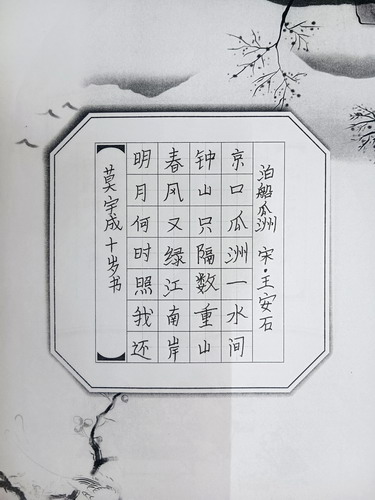 泊船瓜洲 宋·王安石
京口瓜洲一水间
钟山只隔数重山
春风又绿江南岸
明月何时照我还
莫宇成十岁书